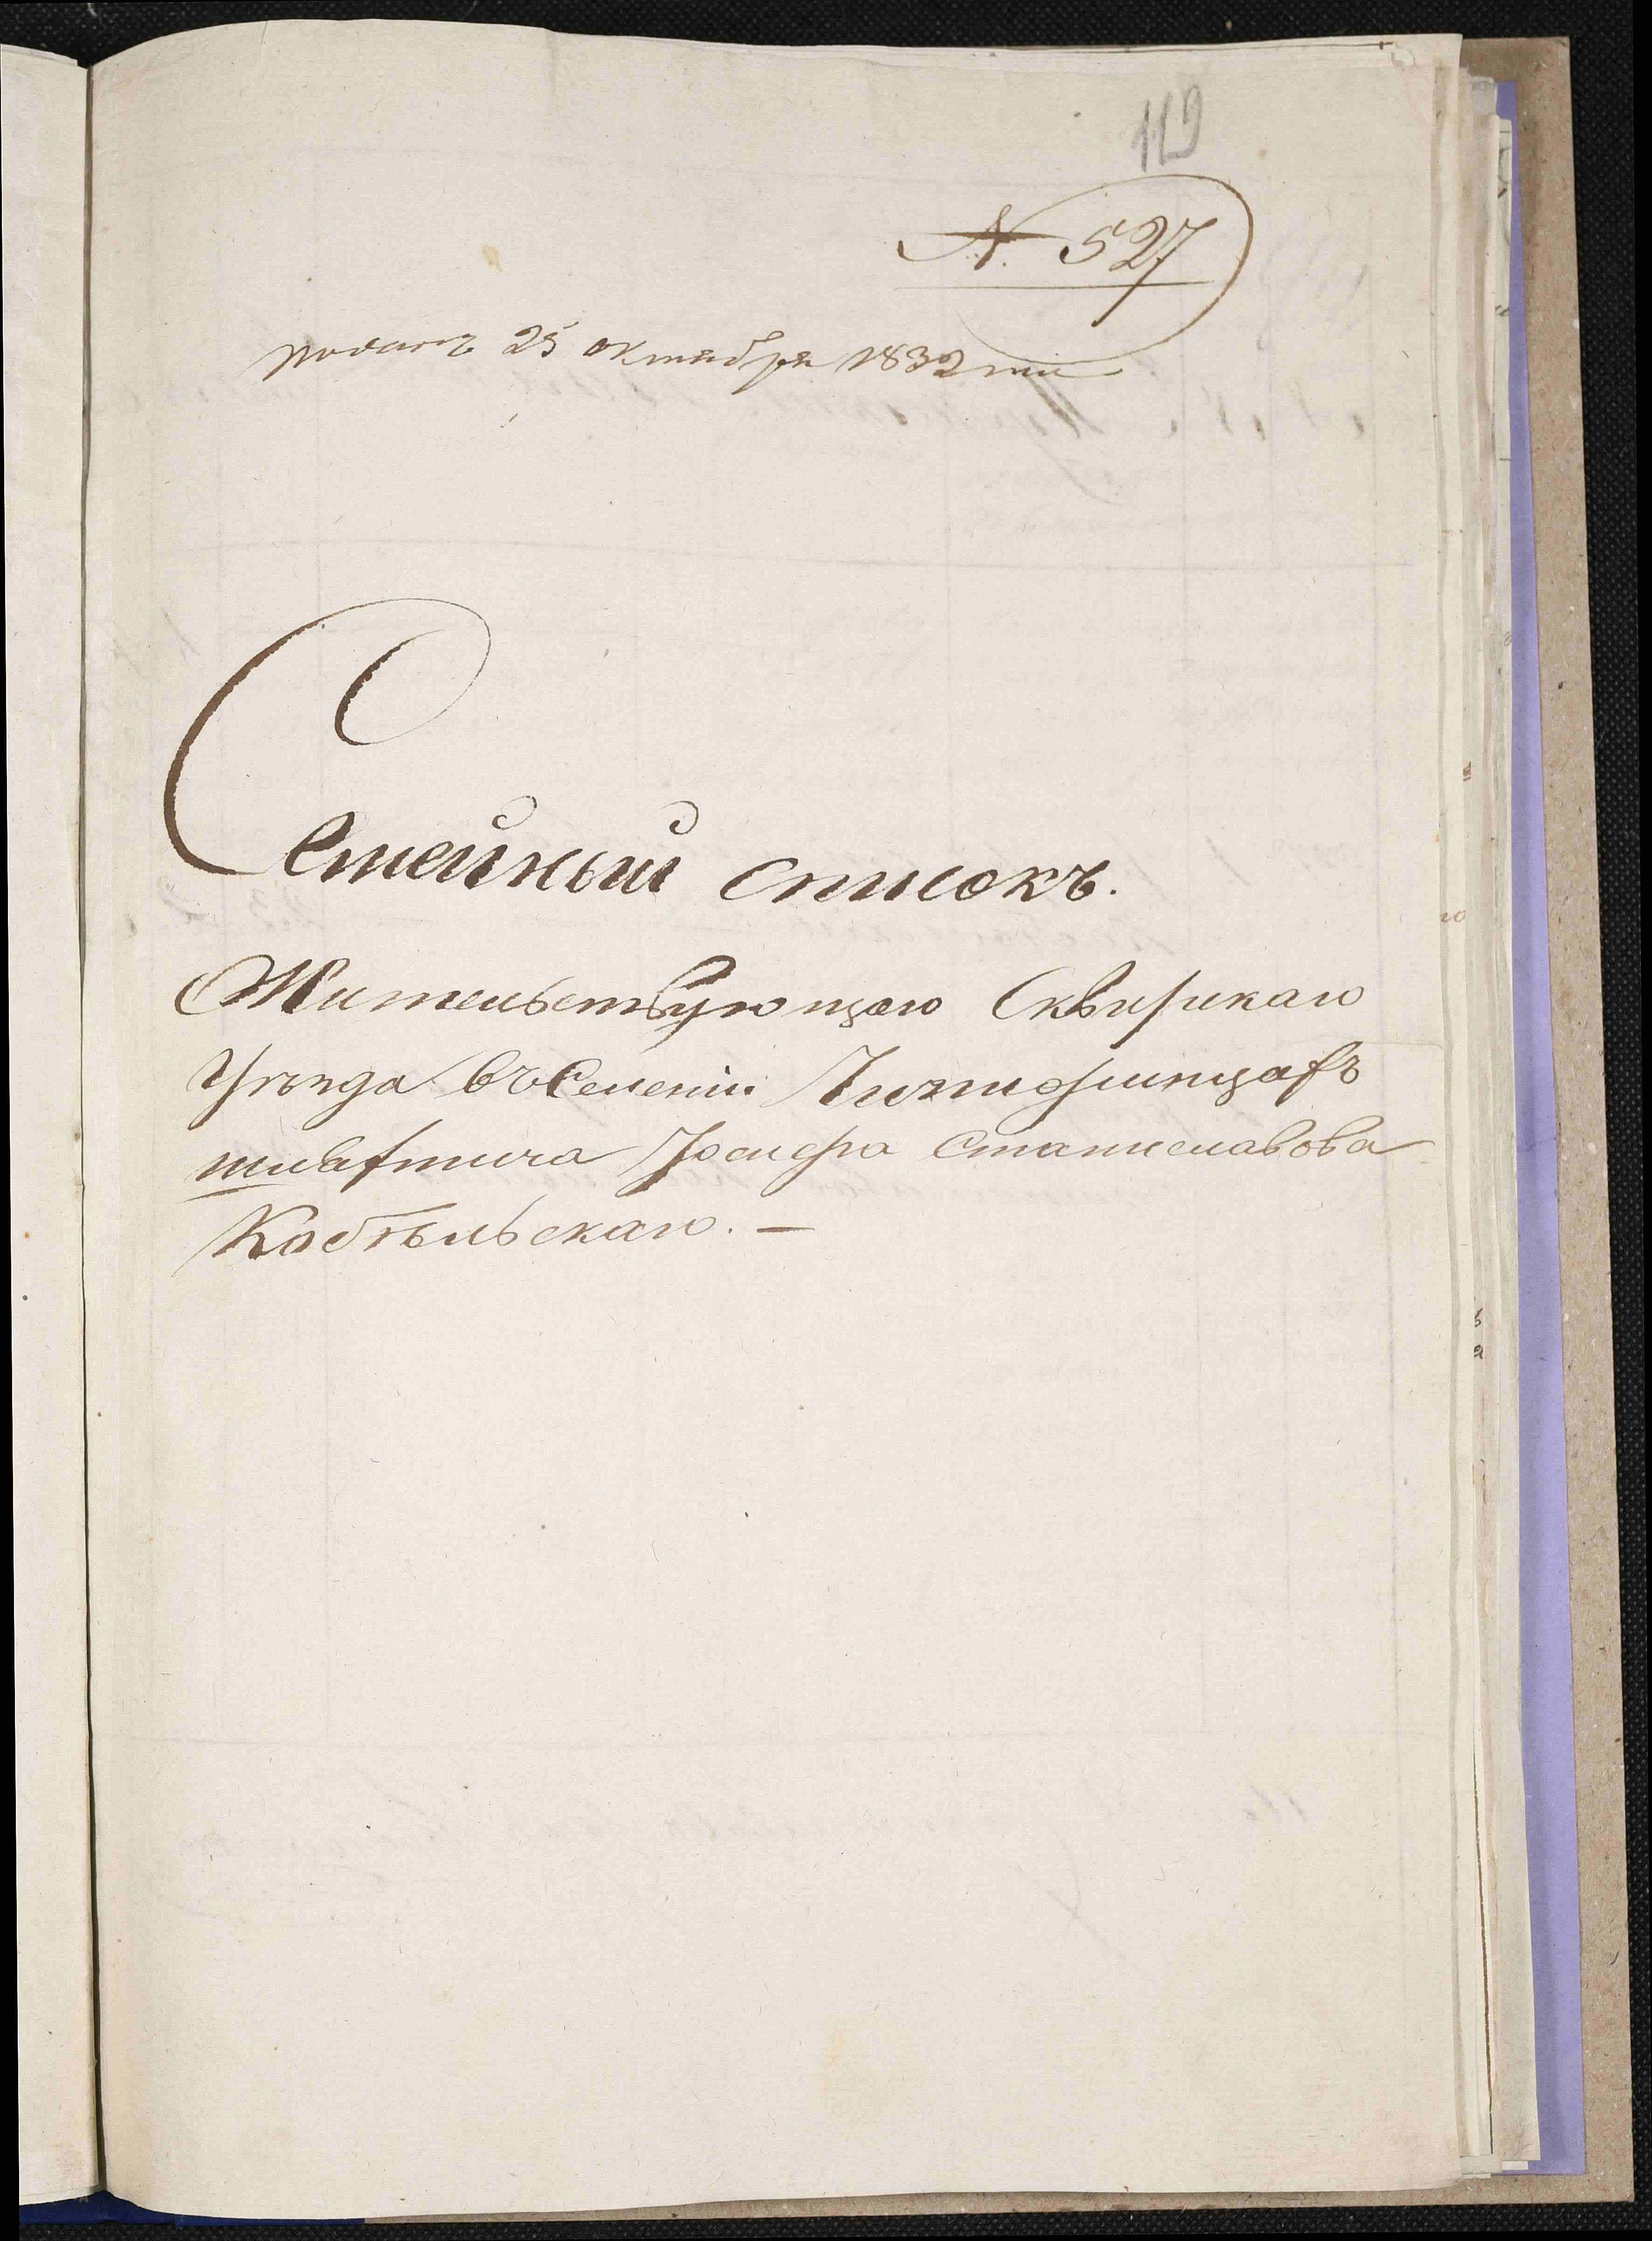 119
№ 527
поданъ 25 октября 1832 г̃ш
Семейный списокъ.
Жительствующаго Сквирскаго
Уѣзда въ Селеніи
шляхтича Іосифа Станиславова
Кобыльскаго. —